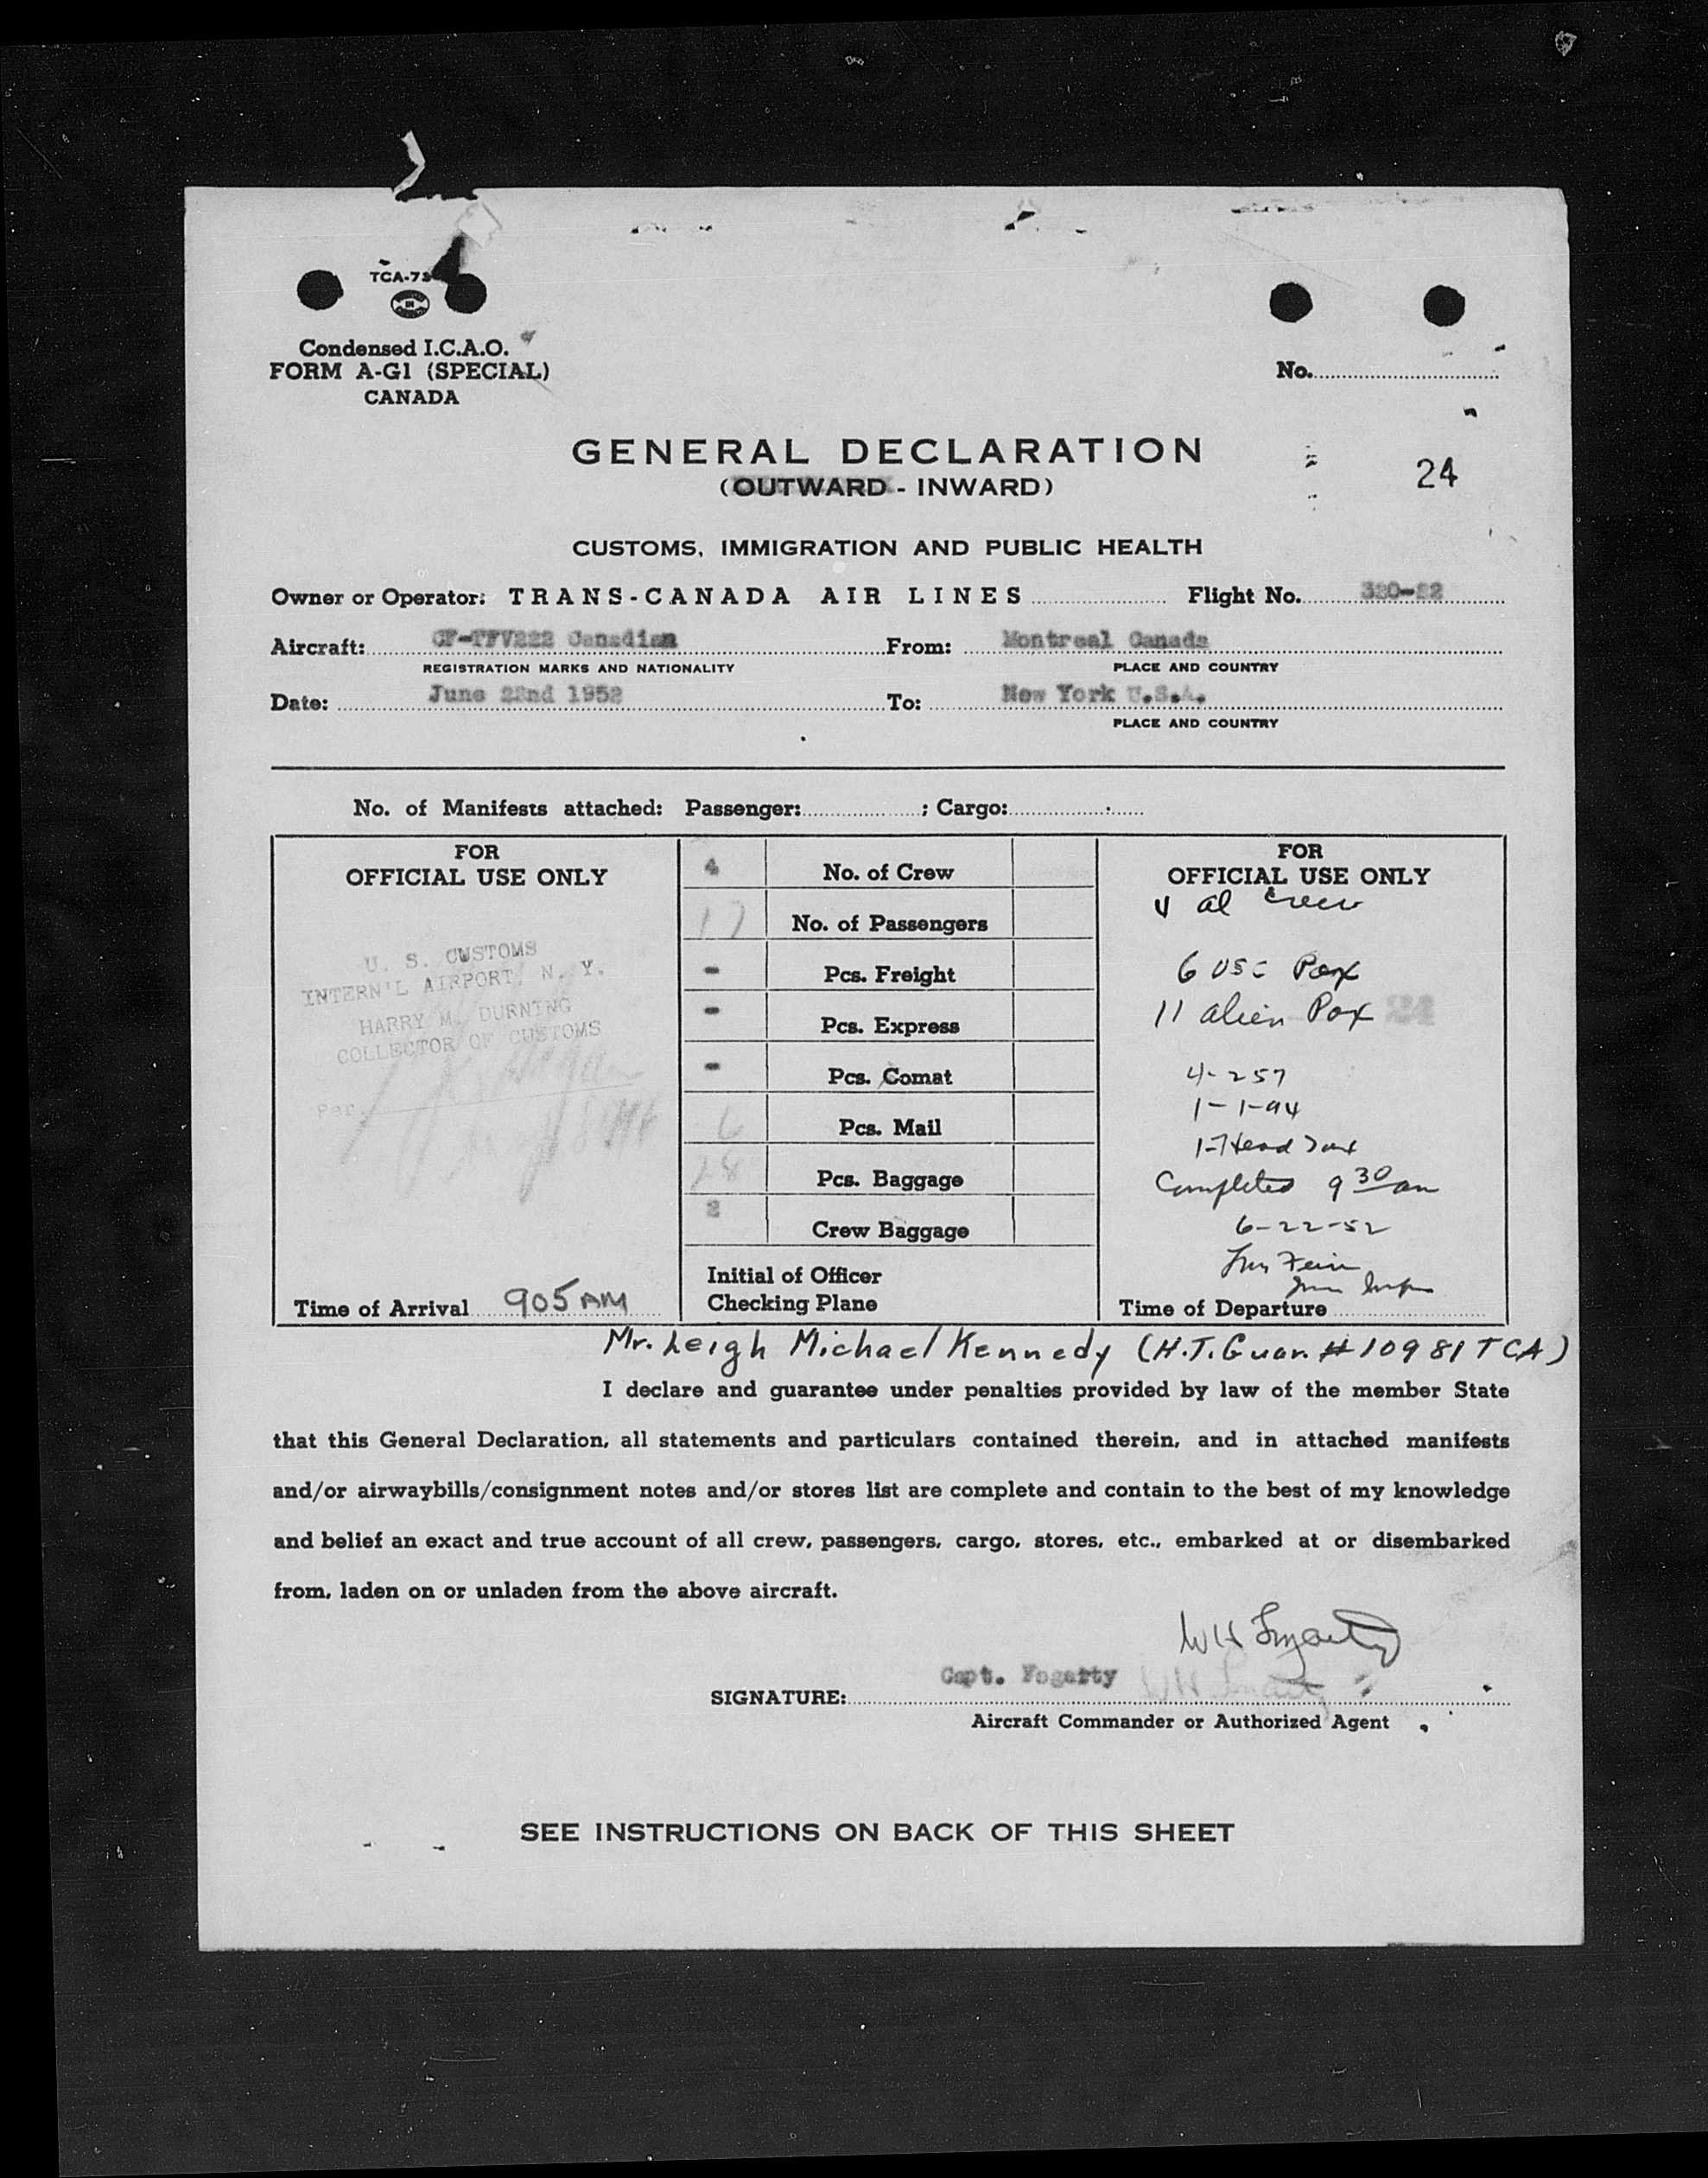 TCA-73
Condensed I.C.A.O.
FORM A-G1 (SPECIAL)
CANADA
No.
GENERAL DECLARATION
24
(OUTWARD - INWARD)
CUSTOMS, IMMIGRATION AND PUBLIC HEALTH
Owner or Operator: TRANS-CANADA AIR LINES Flight No. 320-22
Aircraft: CF-TFV222 Canadian From: Montreal Canada
REGISTRATION MARKS AND NATIONALITY PLACE AND COUNTRY
Date: June 22nd 1952 To: New York U.S.A.
PLACE AND COUNTRY
No. of Manifests attached: Passenger: ; Cargo:
FOR
OFFICIAL USE ONLY
U. S. CUSTOMS
INTERN'L AIRPORT, N. Y.
HARRY M. DURNING
COLLECTOR OF CUSTOMS
Per.
Time of Arrival 905 AM
4 No. of Crew
17 No. of Passengers
- Pcs. Freight
- Pcs. Express
- Pcs. Comat
6 Pcs. Mail
28 Pcs. Baggage
2 Crew Baggage
Initial of Officer
Checking Plane
FOR
OFFICIAL USE ONLY
4 al crew
6 USC Pax
11 alien Pax 24
4-257
1-1-94
1-Head Tax
Completed 9 30 am
6-22-52
Time of Departure
Mr. Leigh Michael Kennedy (H.T. Guar. # 10981 TCA)
I declare and guarantee under penalties provided by law of the member State
that this General Declaration, all statements and particulars contained therein, and in attached manifests
and/or airwaybills/consignment notes and/or stores list are complete and contain to the best of my knowledge
and belief an exact and true account of all crew, passengers, cargo, stores, etc., embarked at or disembarked
from, laden on or unladen from the above aircraft.
WH Fogarty
Capt. Fogarty
SIGNATURE:
Aircraft Commander or Authorized Agent
SEE INSTRUCTIONS ON BACK OF THIS SHEET